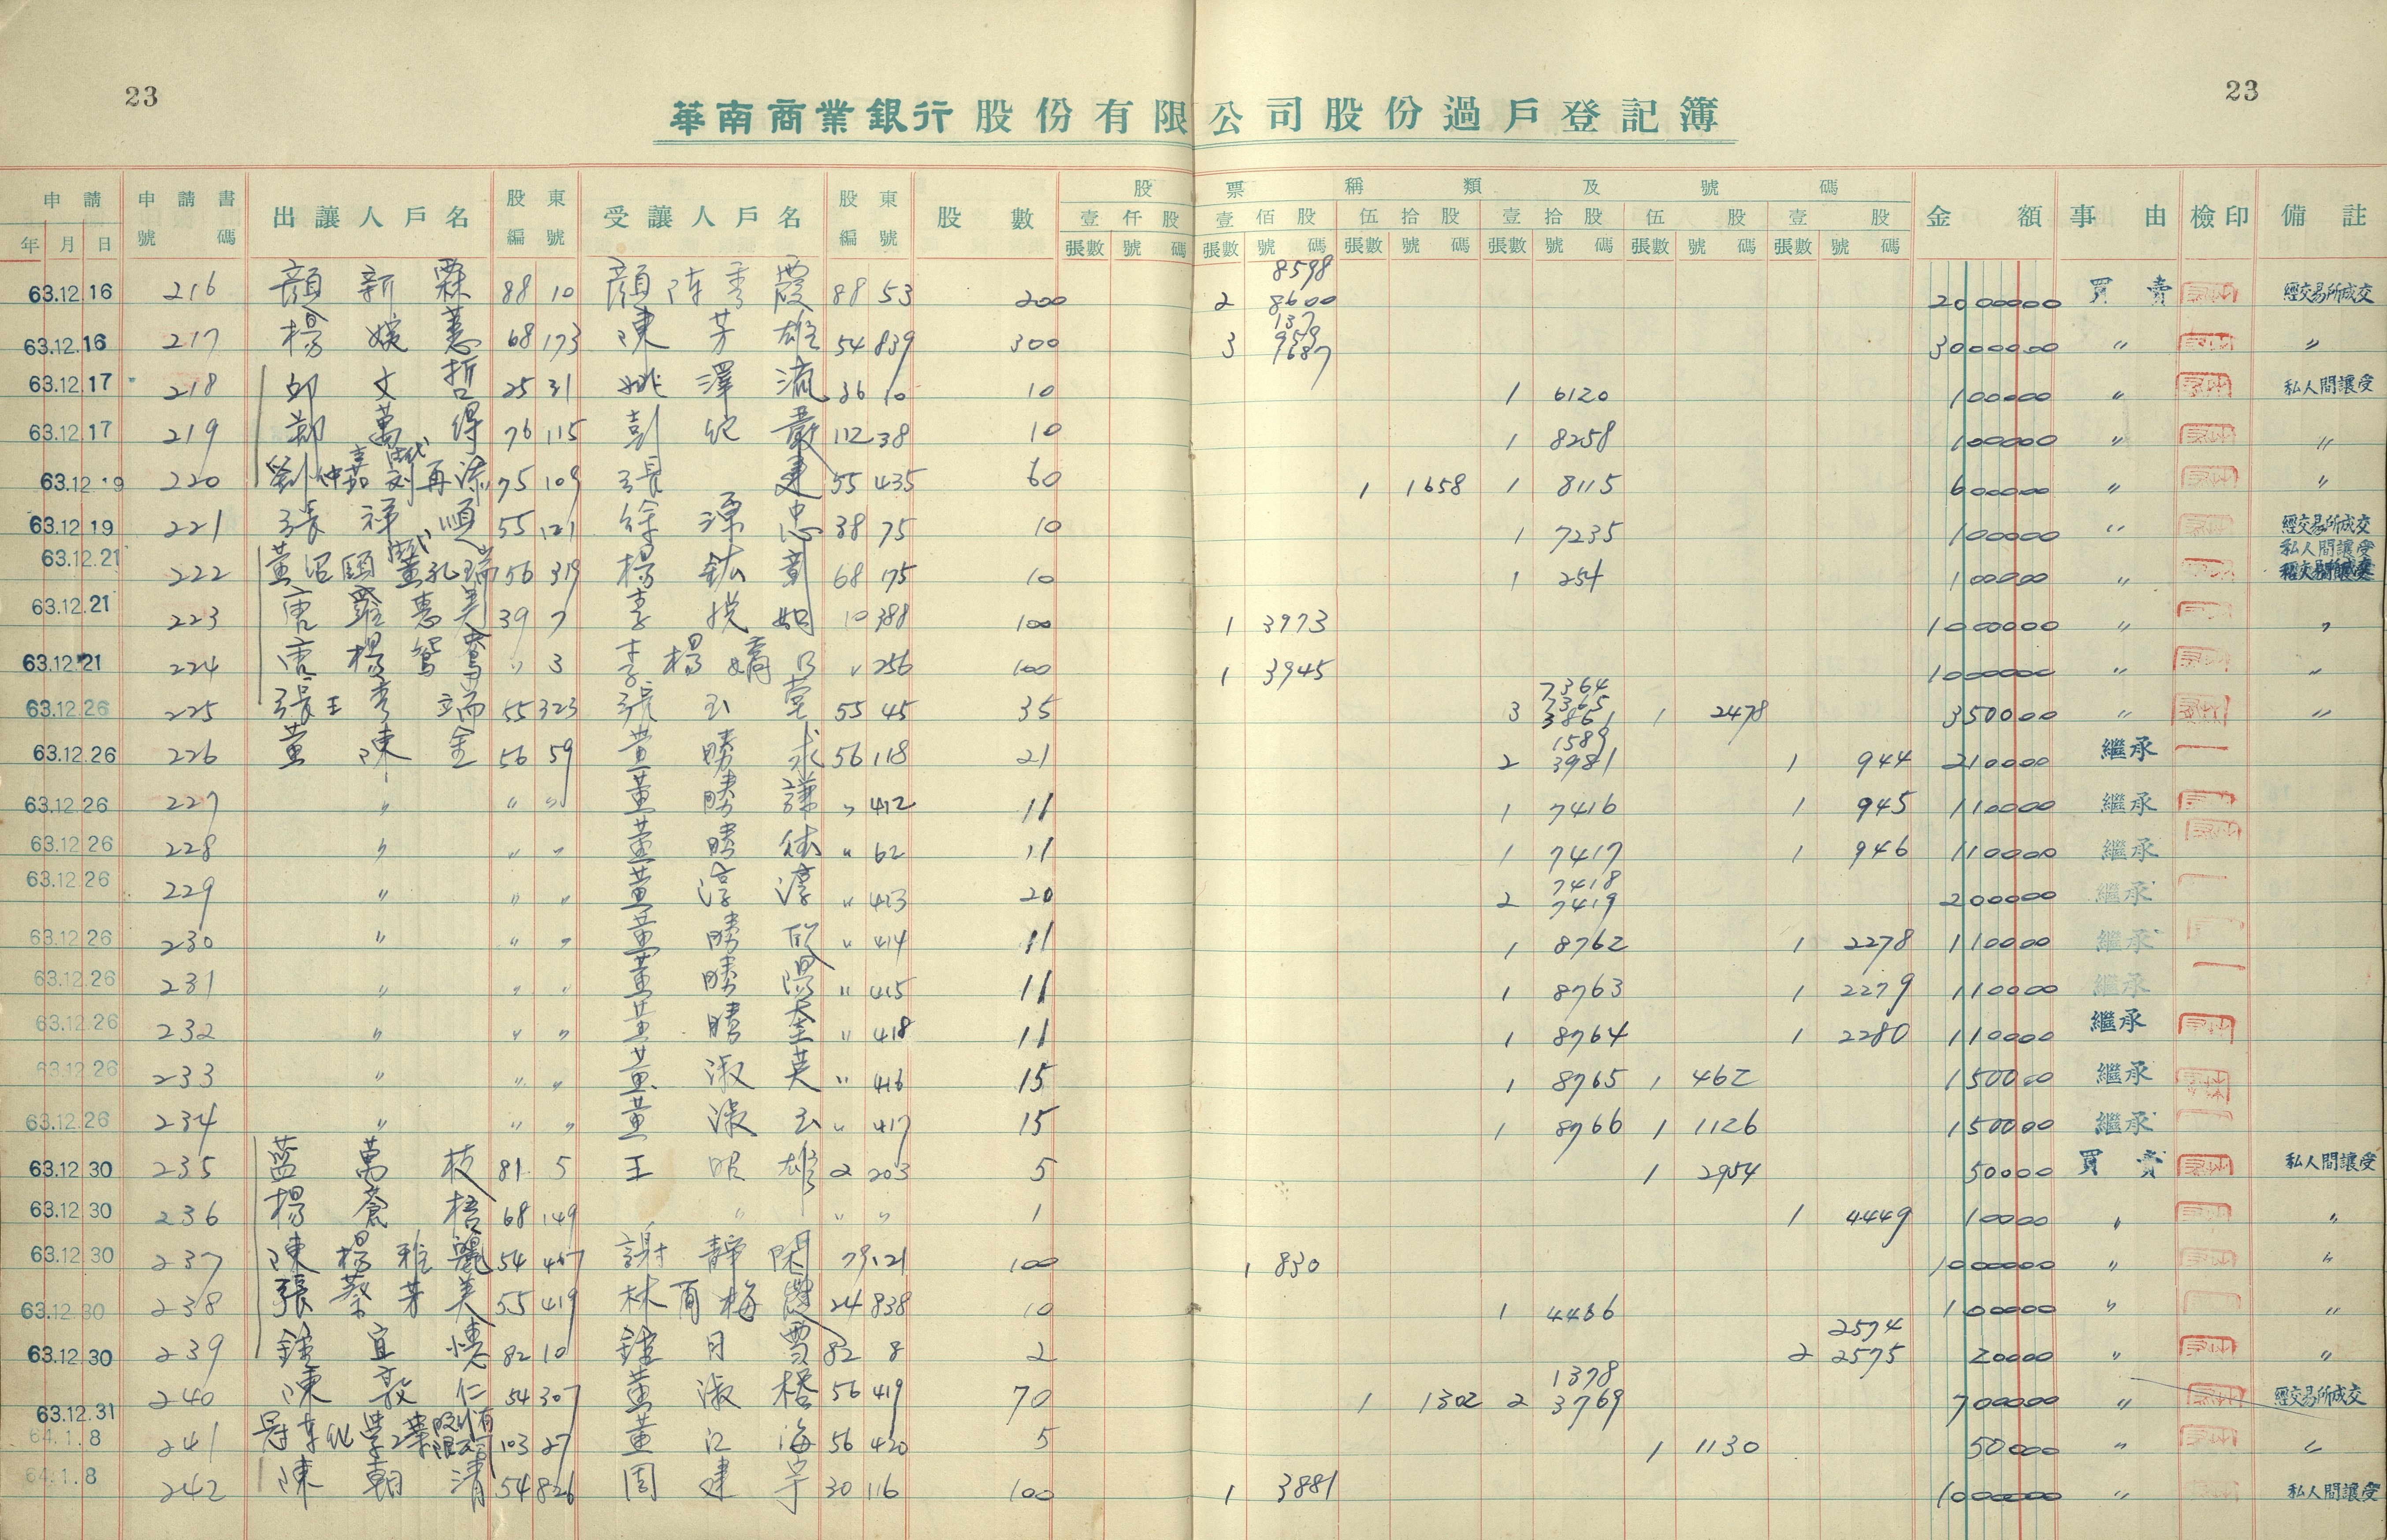 23
23
華南商業銀行股份有限公司股份過戶登記簿
申請 申請書 出讓人戶名 股東 受讓人戶名 股東 股數 股票種類及號碼 金額 事由 檢印 備註
年 月 日 號碼 編號 編號 壹仟股 壹佰股 伍拾股 壹拾股 伍股 壹股
張數 號碼 張數 號碼 張數 號碼 張數 號碼 張數 號碼 張數 號碼
8598
63.12.16 216 顏新霖 88 10 顏陳秀霞 88 53 200 2 8600 2000000 買賣 經交易所成交
137
959
63.12.16 217 楊婉蕙 68 173 陳芳雄 54 839 300 3 9687 3000000 〃 〃
63.12.17 218 邱文哲 25 31 姚澤流 36 10 10 1 6120 100000 〃 私人間讓受
63.12.17 219 鄭萬得 76 115 彭紀嚴 112 38 10 1 8258 100000 〃 〃
63.12.19 220 劉仲嘉 75 109 張建 55 435 60 1 1658 1 8115 600000 〃 〃
63.12.19 221 張禎順 55 121 徐源忠 38 75 10 1 7235 100000 〃 經交易所成交
私人間讓受
63.12.21 222 56 319 楊鈜彰 68 175 10 1 254 100000 〃
63.12.21 223 唐羅惠美 39 7 李 10 388 100 1 3973 1000000 〃 〃
63.12.21 224 唐楊鴛鴦 〃 3 李楊嬌 〃 256 100 1 3945 1000000 〃 〃
7364
7365
63.12.26 225 張王秀端 55 323 張玉堂 55 45 35 3 3861 1 2478 350000 〃 〃
1589
63.12.26 226 黃陳金 56 59 黃勝求 56 118 21 2 3981 1 944 210000 繼承
63.12.26 227 〃 〃 〃 黃勝謙 〃 412 11 1 7416 1 945 110000 繼承
63.12.26 228 〃 〃 〃 黃勝 〃 62 11 1 7417 1 946 110000 繼承
7418
63.12.26 229 〃 〃 〃 黃淳淳 〃 413 20 2 7419 200000 繼承
63.12.26 230 〃 〃 〃 黃勝欣 〃 414 11 1 8762 1 2278 110000 繼承
63.12.26 231 〃 〃 〃 黃勝 〃 415 11 1 8763 1 2279 110000 繼承
63.12.26 232 〃 〃 〃 黃勝奎 〃 418 11 1 8764 1 2280 110000 繼承
63.12.26 233 〃 〃 〃 黃淑英 〃 416 15 1 8765 1 462 150000 繼承
63.12.26 234 〃 〃 〃 黃淑玉 〃 417 15 1 8766 1 1126 150000 繼承
63.12.30 235 藍萬枝 81 5 王昭雄 2 203 5 1 2954 50000 買賣 私人間讓受
63.12.30 236 楊蒼梧 68 149 〃 〃 〃 1 1 4449 10000 〃 〃
63.12.30 237 陳楊雅麗 54 467 謝靜閑 79 121 100 1 830 1000000 〃 〃
63.12.30 238 張蔡芳美 55 419 林 梅 24 838 10 1 4466 100000 〃 〃
2574
63.12.30 239 鍾宜 82 10 鍾月雪 82 8 2 2 2575 20000 〃 〃
1378
63.12.31 240 陳敦仁 54 307 黃淑 56 419 70 1 1302 2 3769 700000 〃 經交易所成交
64.1.8 241 103 27 黃江海 56 420 5 1 1130 50000 〃 〃
64.1.8 242 陳朝清 54 826 周建宇 30 116 100 1 3881 1000000 〃 私人間讓受